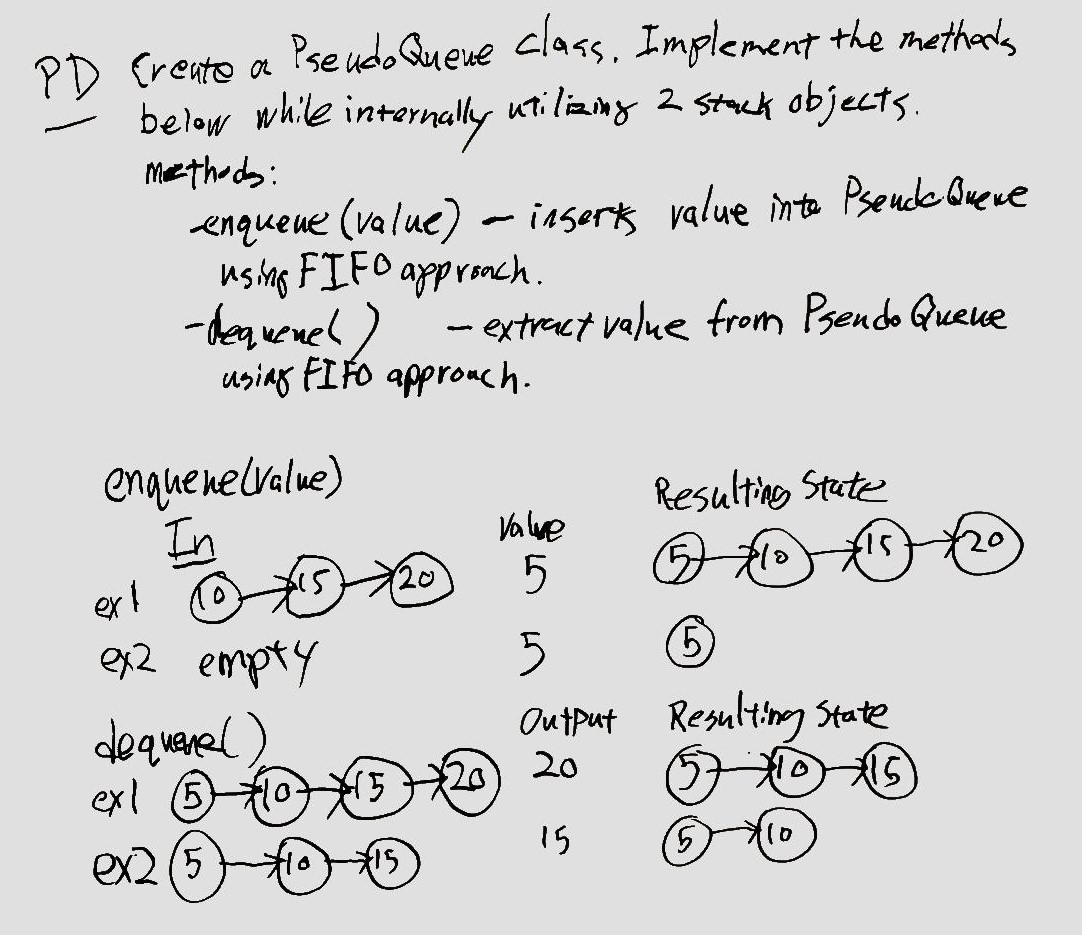 PD Create a PseudoQueue class. Implement the methods
below while internally utilizing 2 stack objects.
methods:
-enqueue (value) – inserts value into PseudoQueue
using FIFO approach.
-dequeue() – extract value from PseudoQueue
using FIFO approach.
enqueue(value)
In Value Resulting State
ex1 10 15 20 5 5 10 15 20
ex2 empty 5 5
dequeue() Output Resulting State
ex1 5 10 15 20 20 5 10 15
ex2 5 10 15 15 5 10